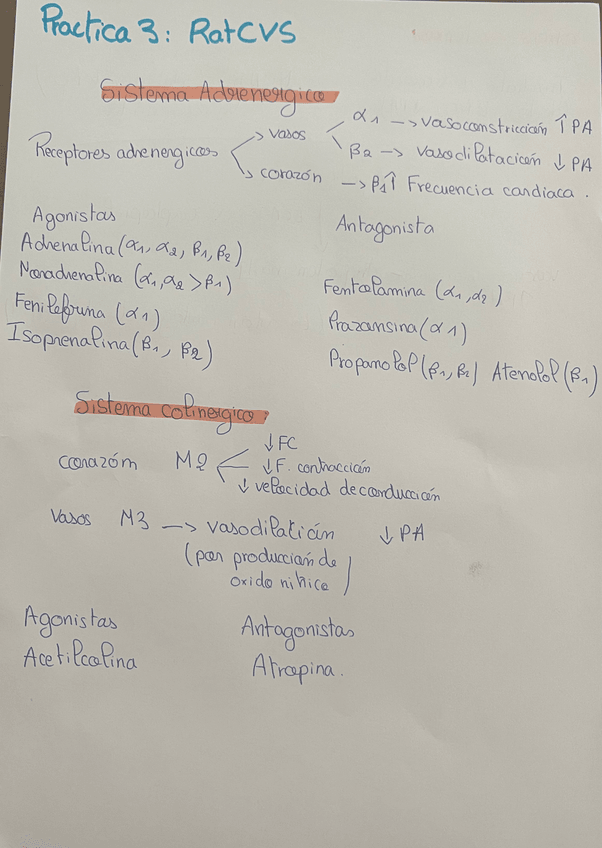 Practica 3: RatCVS
Sistema Adrenergico
Receptores adrenergicos
→ vasos
α1 → vasoconstricción ↑ PA
β2 → Vasodilatacición ↓ PA
→ corazón → β1↑ Frecuencia cardiaca.
Agonistas
Adrenalina (α1, α2, β1, β2)
Noradrenalina (α1, α2 > β1)
Fenilefruna (α1)
Isoprenalina (β1, β2)
Antagonista
Fentolamina (α1, α2)
Prazonsina (α1)
Propanolol (β1, β2) Atenolol (β1)
Sistema colinergico:
corazón M2
↓ FC
↓ F. contracción
↓ velocidad de conducción
Vasos M3 → vasodilatición ↓ PA
(por producción de
oxido nitrico)
Agonistas
Acetilcolina
Antagonistas
Atropina.